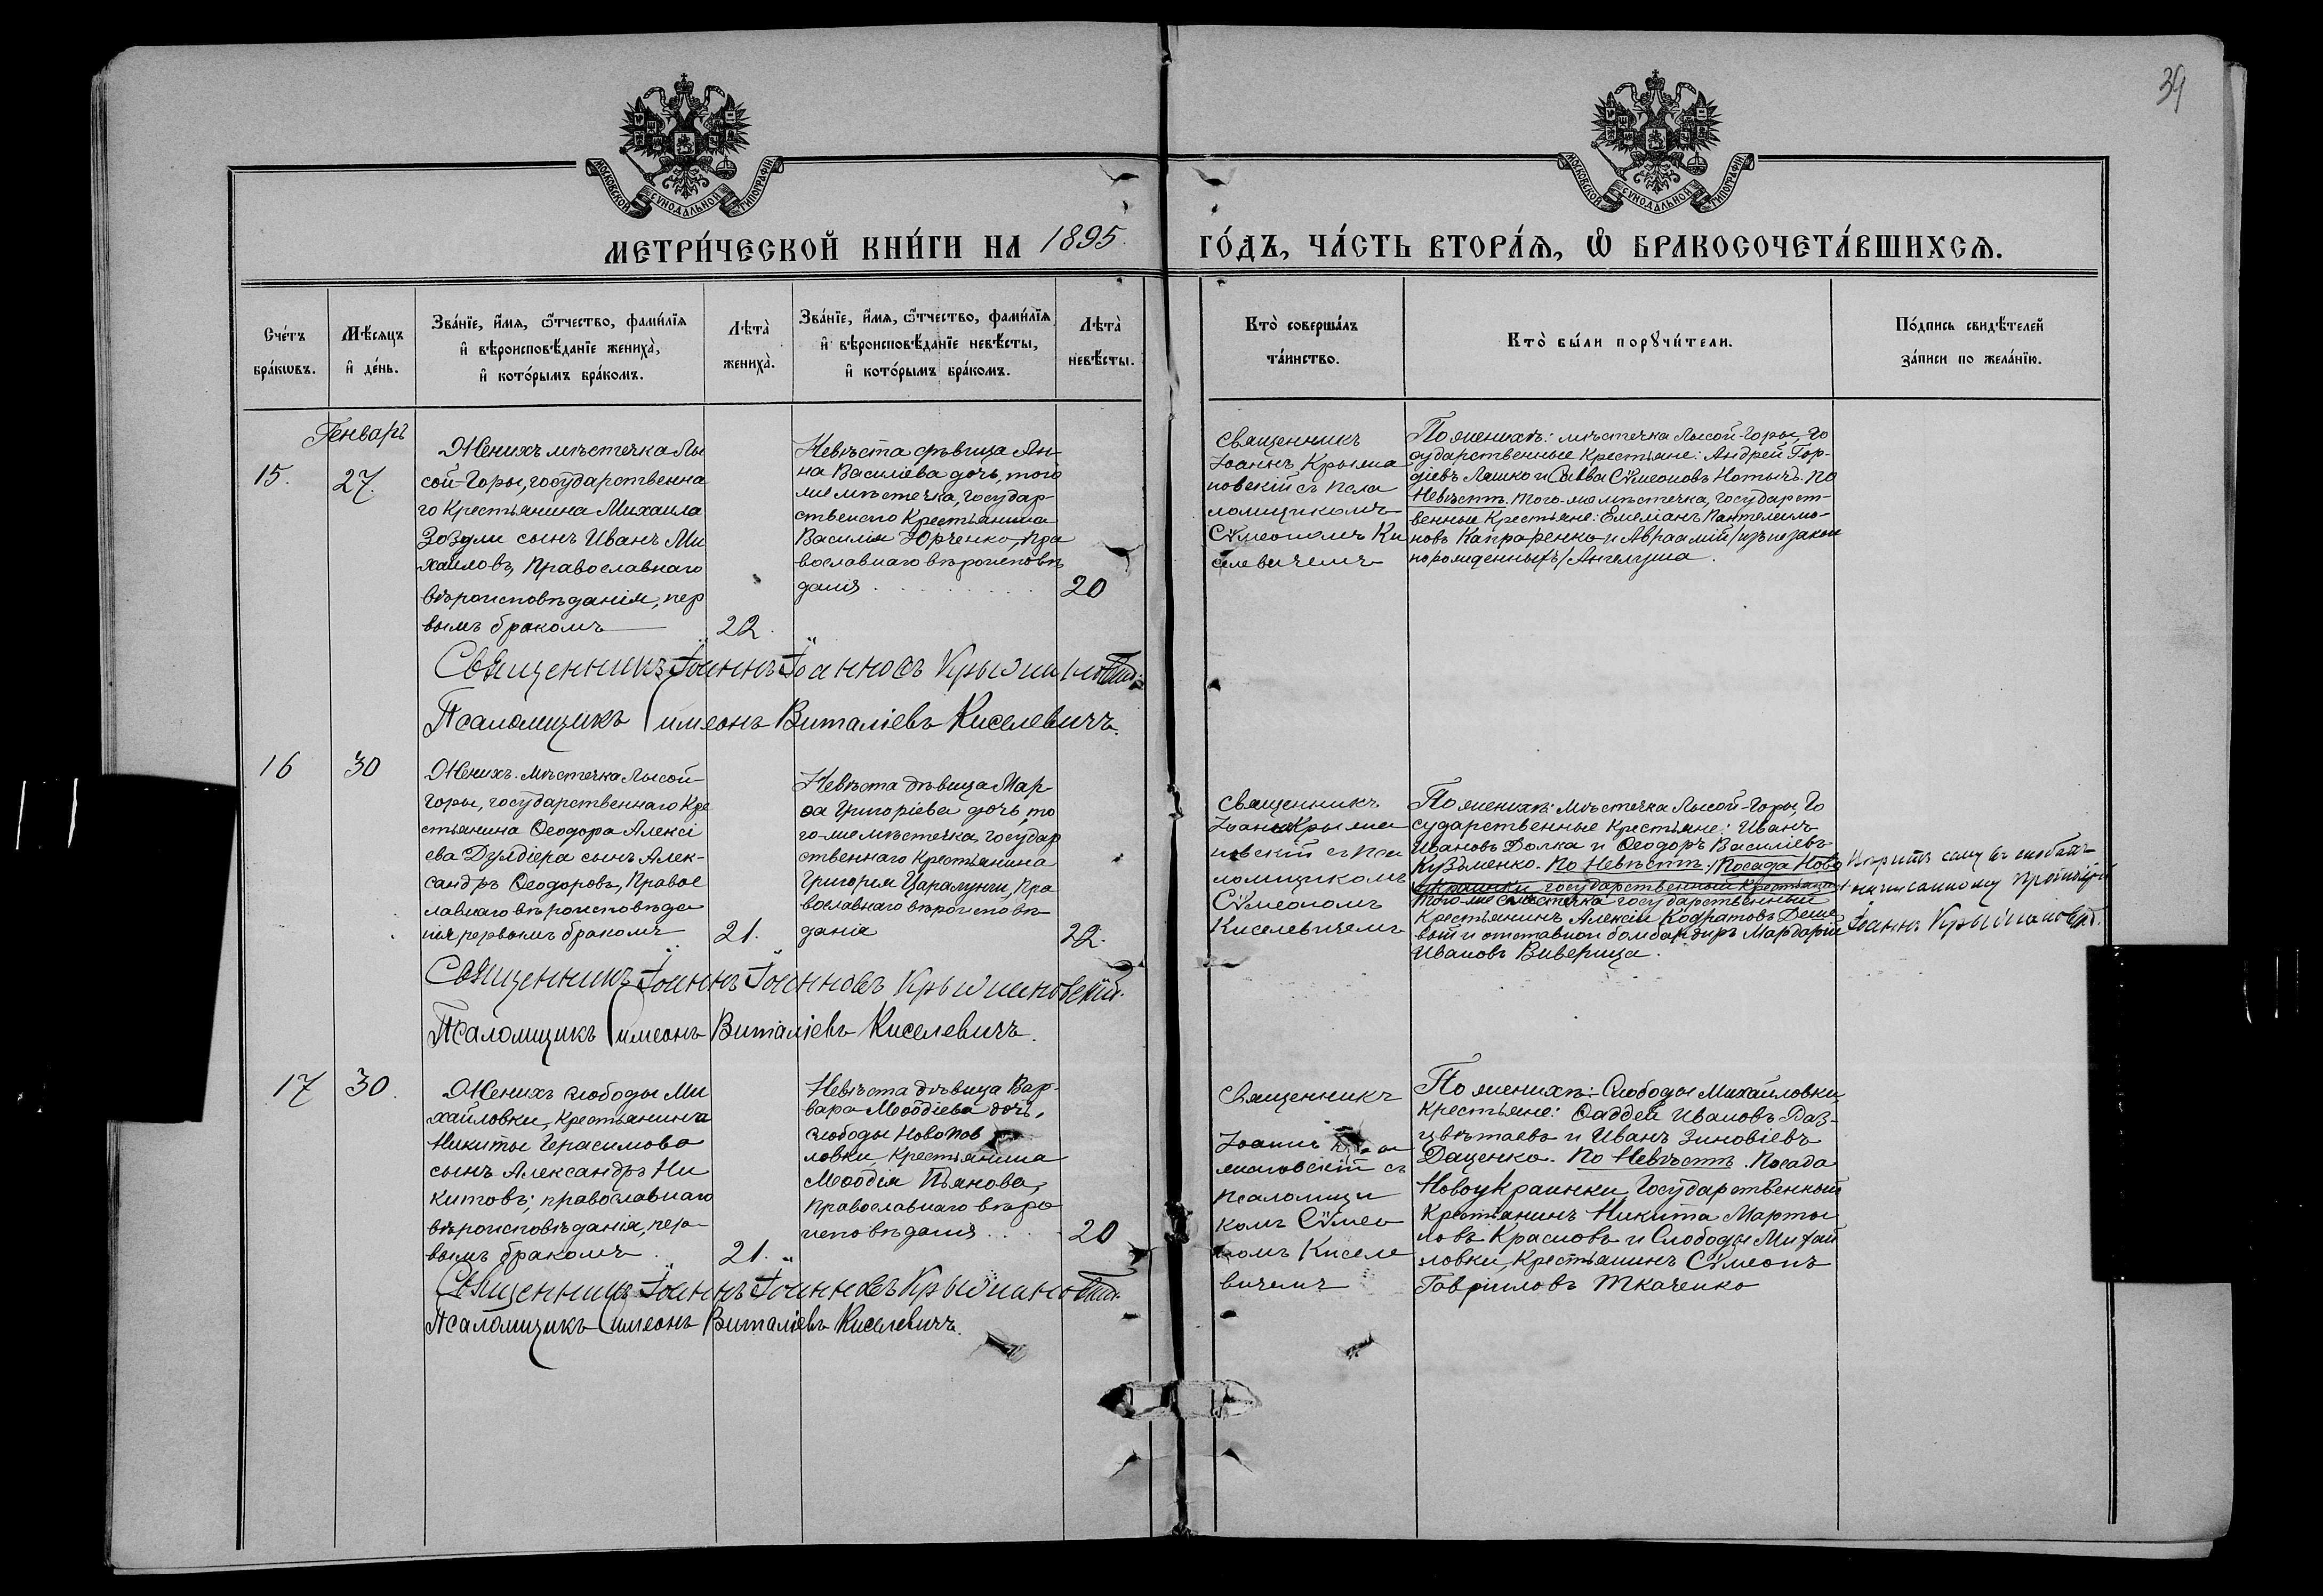 39
МОСКОВСКОЙ СѴНОДАЛЬНОЙ ТИПОГРАФІИ
МОСКОВСКОЙ СѴНОДАЛЬНОЙ ТИПОГРАФІИ
МЕТРИ́ЧЕСКОЙ КНИ́ГИ НА 1895. ГО́ДЪ, ЧА́СТЬ ВТОРА́Я, Ѡ БРАКОСОЧЕТА́ВШИХСЯ.
Сче́тъ
бра́кѡвъ.
Мѣ́сяцъ
и де́нь.
Зва́нїе, и́мя, ѻ́тчество, фами́лїя
и вѣроисповѣ́данїе жениха̀,
и кото́рымъ бра́комъ.
Лѣта̀
жениха̀.
Зва́нїе, и́мя, ѻ́тчество, фами́лїя
и вѣроисповѣ́данїе невѣ́сты,
и кото́рымъ бра́комъ.
Лѣта̀
невѣ́сты.
Кто̀ соверша́лъ
та́инство.
Кто̀ бы́ли порꙋчи́тели.
По́дпись свидѣ́телей
за́писи по жела́нїю.
Генварь
15.
27.
Женихъ мѣстечка Лы
сой-Горы, государственна
го Крестьянина Михаила
Зозули сынъ Иванъ Ми
хайловъ, Православнаго
вѣроисповѣданія, пер
вымъ бракомъ
22.
Невѣста дѣвица Ан-
на Василіева дочь, того
же мѣстечка, Государ-
ственаго Крестьянина
Василія Юрченко, Пра
вославнаго вѣроисповѣ
данія
20
Священникъ
Іоаннъ Крыжа
новскій съ Пса
ломщикомъ
Сѵмеономъ Ки
селевичемъ
По женихѣ: мѣстечка Лысой-Горы, Го
сударственные Крестьяне: Андрей Гор-
діевъ Ляшко и Савва Сѵмеоновъ Нотычъ. По
Невѣстѣ. Того-же мѣстечка, Государст-
венные Крестьяне: Емеліанъ Пантелеимо-
новъ Капраренко и Авраамій /изъ незакон
норожденныхъ/ Ангелуша.
Священникъ Іоаннъ Іоанновъ Крыжановскій.
Псаломщикъ Симеонъ Виталіевъ Киселевичъ.
16
30
Женихъ. Мѣстечка Лысой-
Горы, государственнаго Кре
стьянина Ѳеодора Алексі
ева Дзлдіера сынъ Алек-
сандръ Ѳеодоровъ, Правос
лавнаго вѣроисповѣда
нія первымъ бракомъ
21.
Невѣста дѣвица Мар-
ѳа Григоріева дочь, то
го-же мѣстечка, Государ
ственнаго Крестьянина
Григорія Царалунги, Пра
вославнаго вѣроисповѣ
данія
22.
Священникъ
Іоаннъ Крыжа
новскій съ Пса
ломщикомъ
Сѵмеономъ
Киселевичемъ
По женихѣ: Мѣстечка Лысой-Горы, Го
сударственные Крестьяне: Иванъ
Ивановъ Долка и Ѳеодоръ Василіевъ
Кузьменко. По Невѣстѣ: /Посада Ново
украинки государственный Крестьянинъ/
Того-же мѣстечка государственный
Крестьянинъ Алексій Кодратовъ Деше
вый и отставной бомбардиръ Мардарій
Ивановъ Виверица.
Іоаннъ Крыжановскій.
Священникъ Іоаннъ Іоанновъ Крыжановскій.
Псаломщикъ Симеонъ Виталіевъ Киселевичъ.
17
30.
Женихъ слободы Ми
хайловки, Крестьянина
Никиты Герасимова
сынъ Александръ Ни
китовъ; православнаго
вѣроисповѣданія, пер-
вымъ бракомъ
21.
Невѣста дѣвица Вар-
вара Меѳодіева дочь,
слободы Новопав
ловки, Крестьянина
Меѳодія Пьянова,
Православнаго вѣро
исповѣданія
20
Священникъ
Іоаннъ
жановскій съ
псаломщи
комъ Сѵмео
номъ Киселе
вичемъ
По женихѣ: Слободы Михайловки,
Крестьяне: Ѳаддей Ивановъ Раз-
цвѣтаевъ и Иванъ Зиновіевъ
Даценко. По Невѣстѣ. Посада
Новоукраинки, Государственный
Крестьянинъ Никита Марты
новъ Красновъ и Слободы Михай
ловки, Крестьянинъ Сѵмеонъ
Гавриловъ Ткаченко
Священникъ Іоаннъ Іоанновъ Крыжановскій.
Псаломщикъ Симеонъ Виталіевъ Киселевичъ.